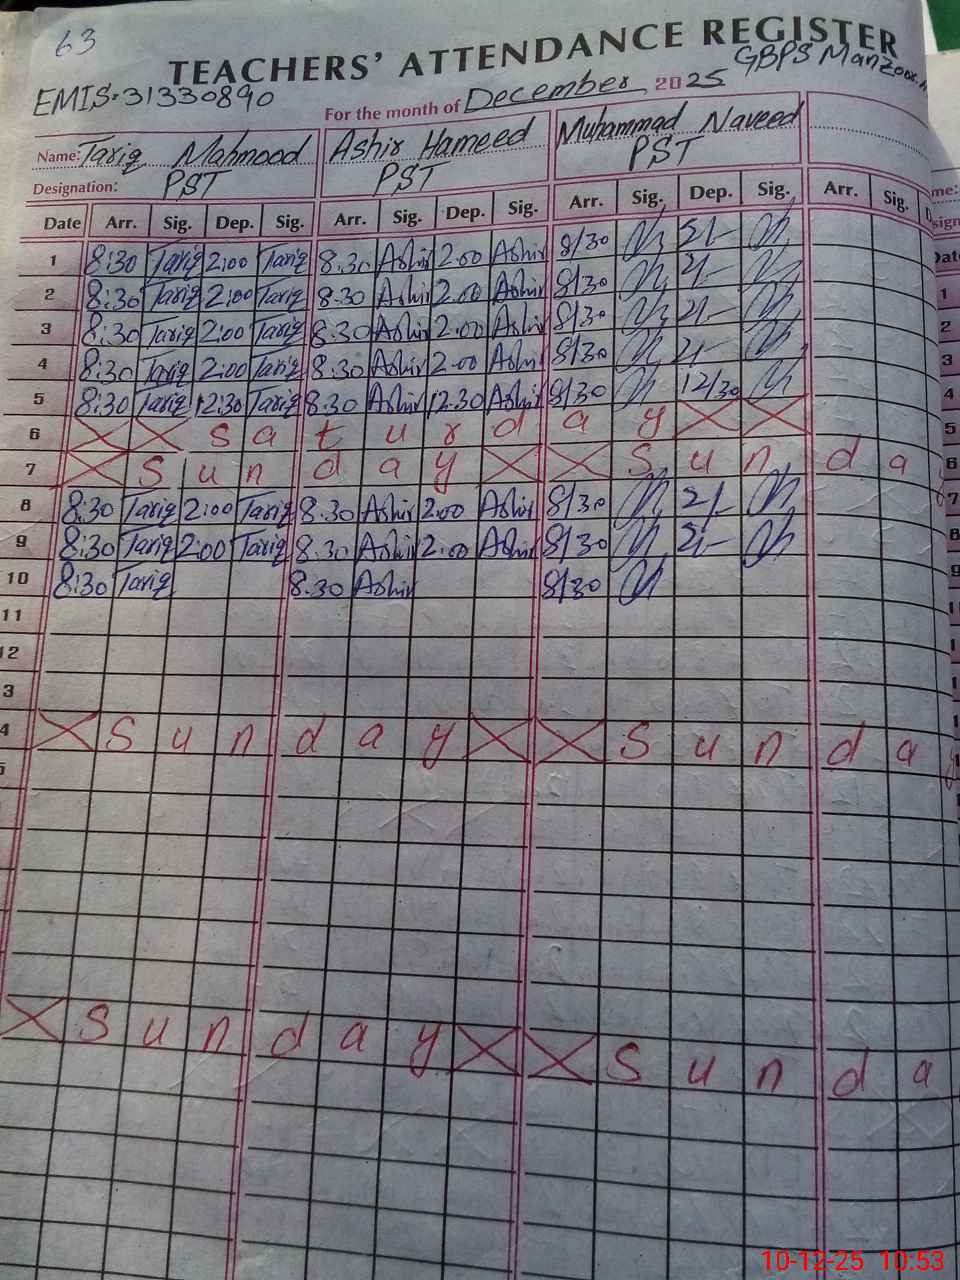 63
TEACHERS' ATTENDANCE REGISTER
EMIS.31330890 GBPS Manzoor
For the month of December 2025
Name: Tariq Mahmood Ashir Hameed Muhammad Naveed
Designation: PST PST PST
Date Arr. Sig. Dep. Sig. Arr. Sig. Dep. Sig. Arr. Sig. Dep. Sig. Arr. Sig.
1 8:30 Tariq 2:00 Tariq 8.30 Ashir 2.00 Ashir 8/30 2/-
2 8:30 Tariq 2:00 Tariq 8.30 Ashir 2.00 Ashir 8/30 2/-
3 8:30 Tariq 2:00 Tariq 8.30 Ashir 2.00 Ashir 8/30 2/-
4 8:30 Tariq 2:00 Tariq 8.30 Ashir 2.00 Ashir 8/30 2/-
5 8:30 Tariq 12:30 Tariq 8.30 Ashir 12.30 Ashir 8/30 12/30
6 X X S a t u r d a y X X
7 X S u n d a y X X S u n d a
8 8:30 Tariq 2:00 Tariq 8.30 Ashir 2.00 Ashir 8/30 2/-
9 8:30 Tariq 2:00 Tariq 8.30 Ashir 2.00 Ashir 8/30 2/-
10 8:30 Tariq 8.30 Ashir 8/30
11
12
3
4 X S u n d a y X X S u n d a y
5
X S u n d a y X X S u n d a
10-12-25 10:53